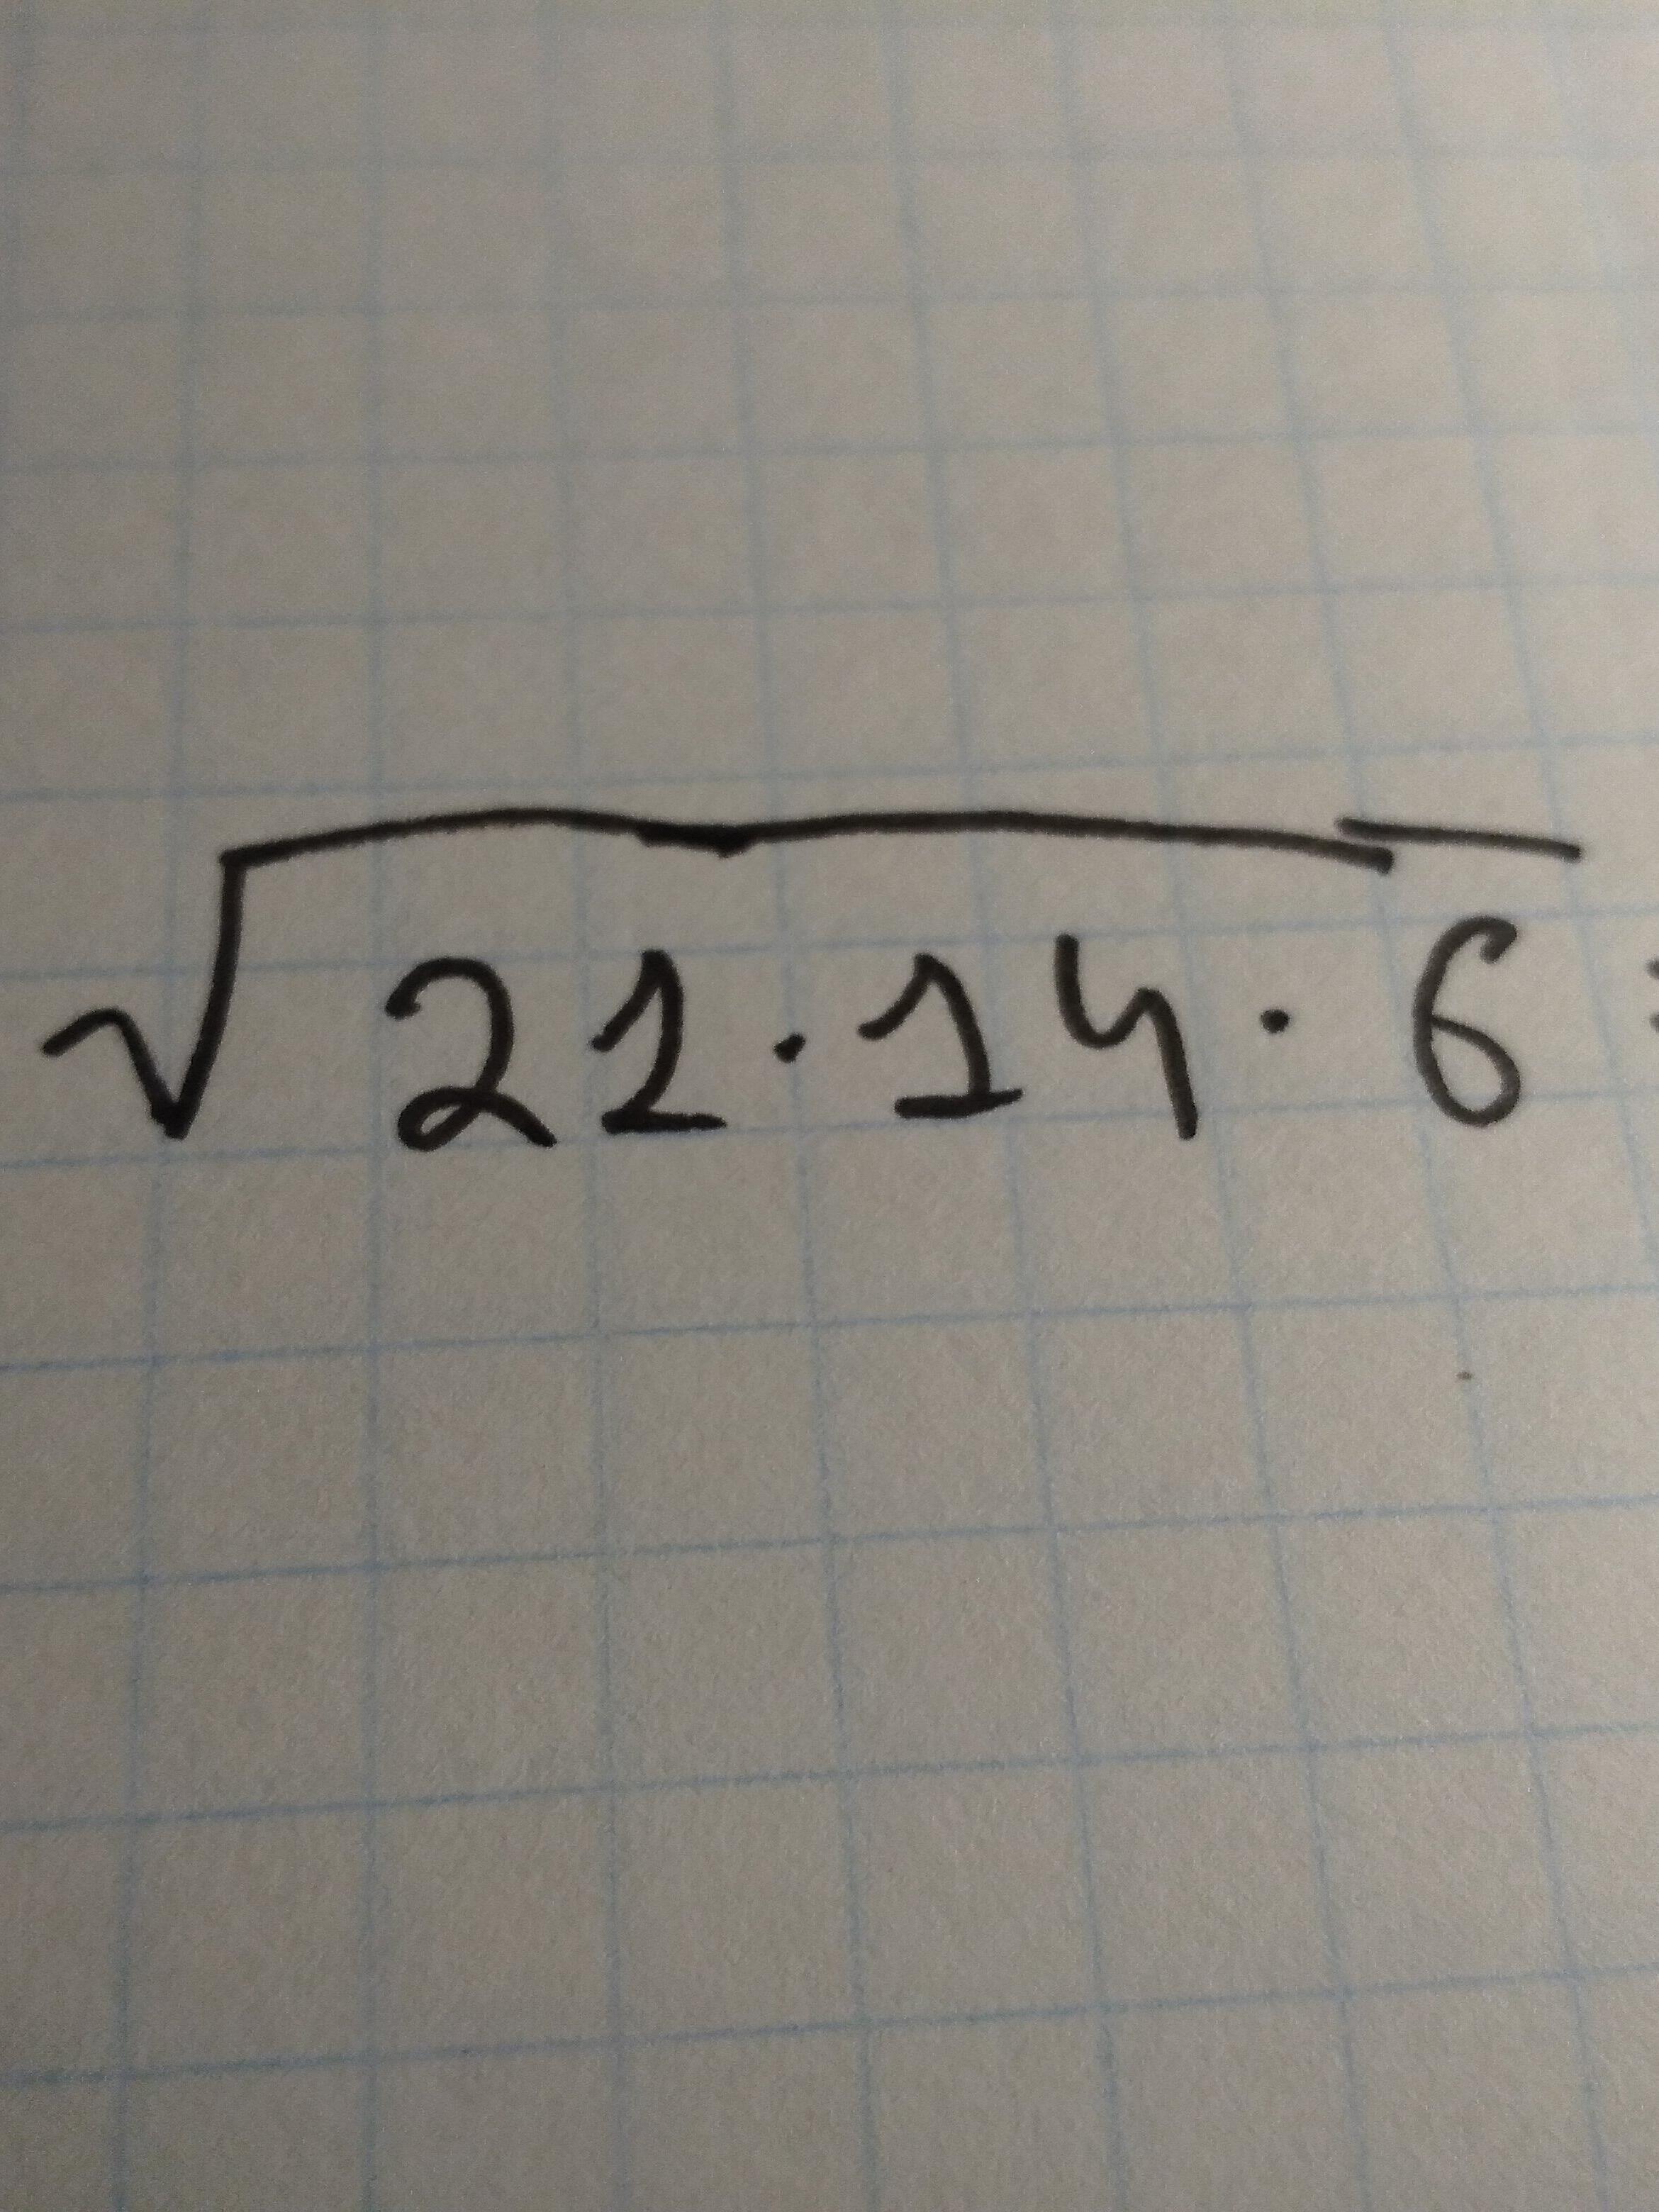 √21·14·6=